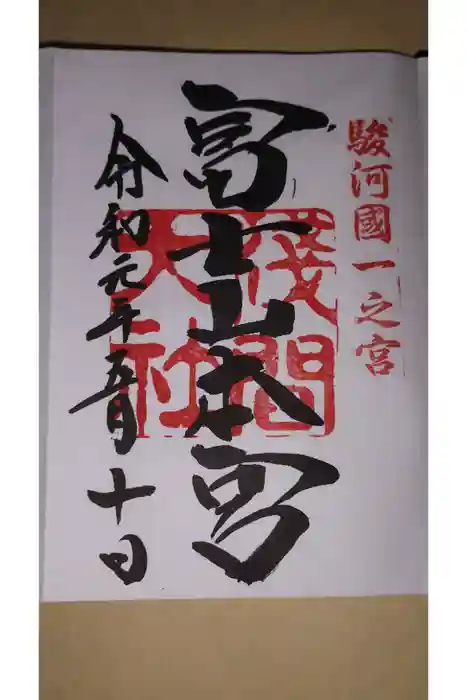 駿河國一之宮
富士山本宮
浅間
大社
令和元年五月十日